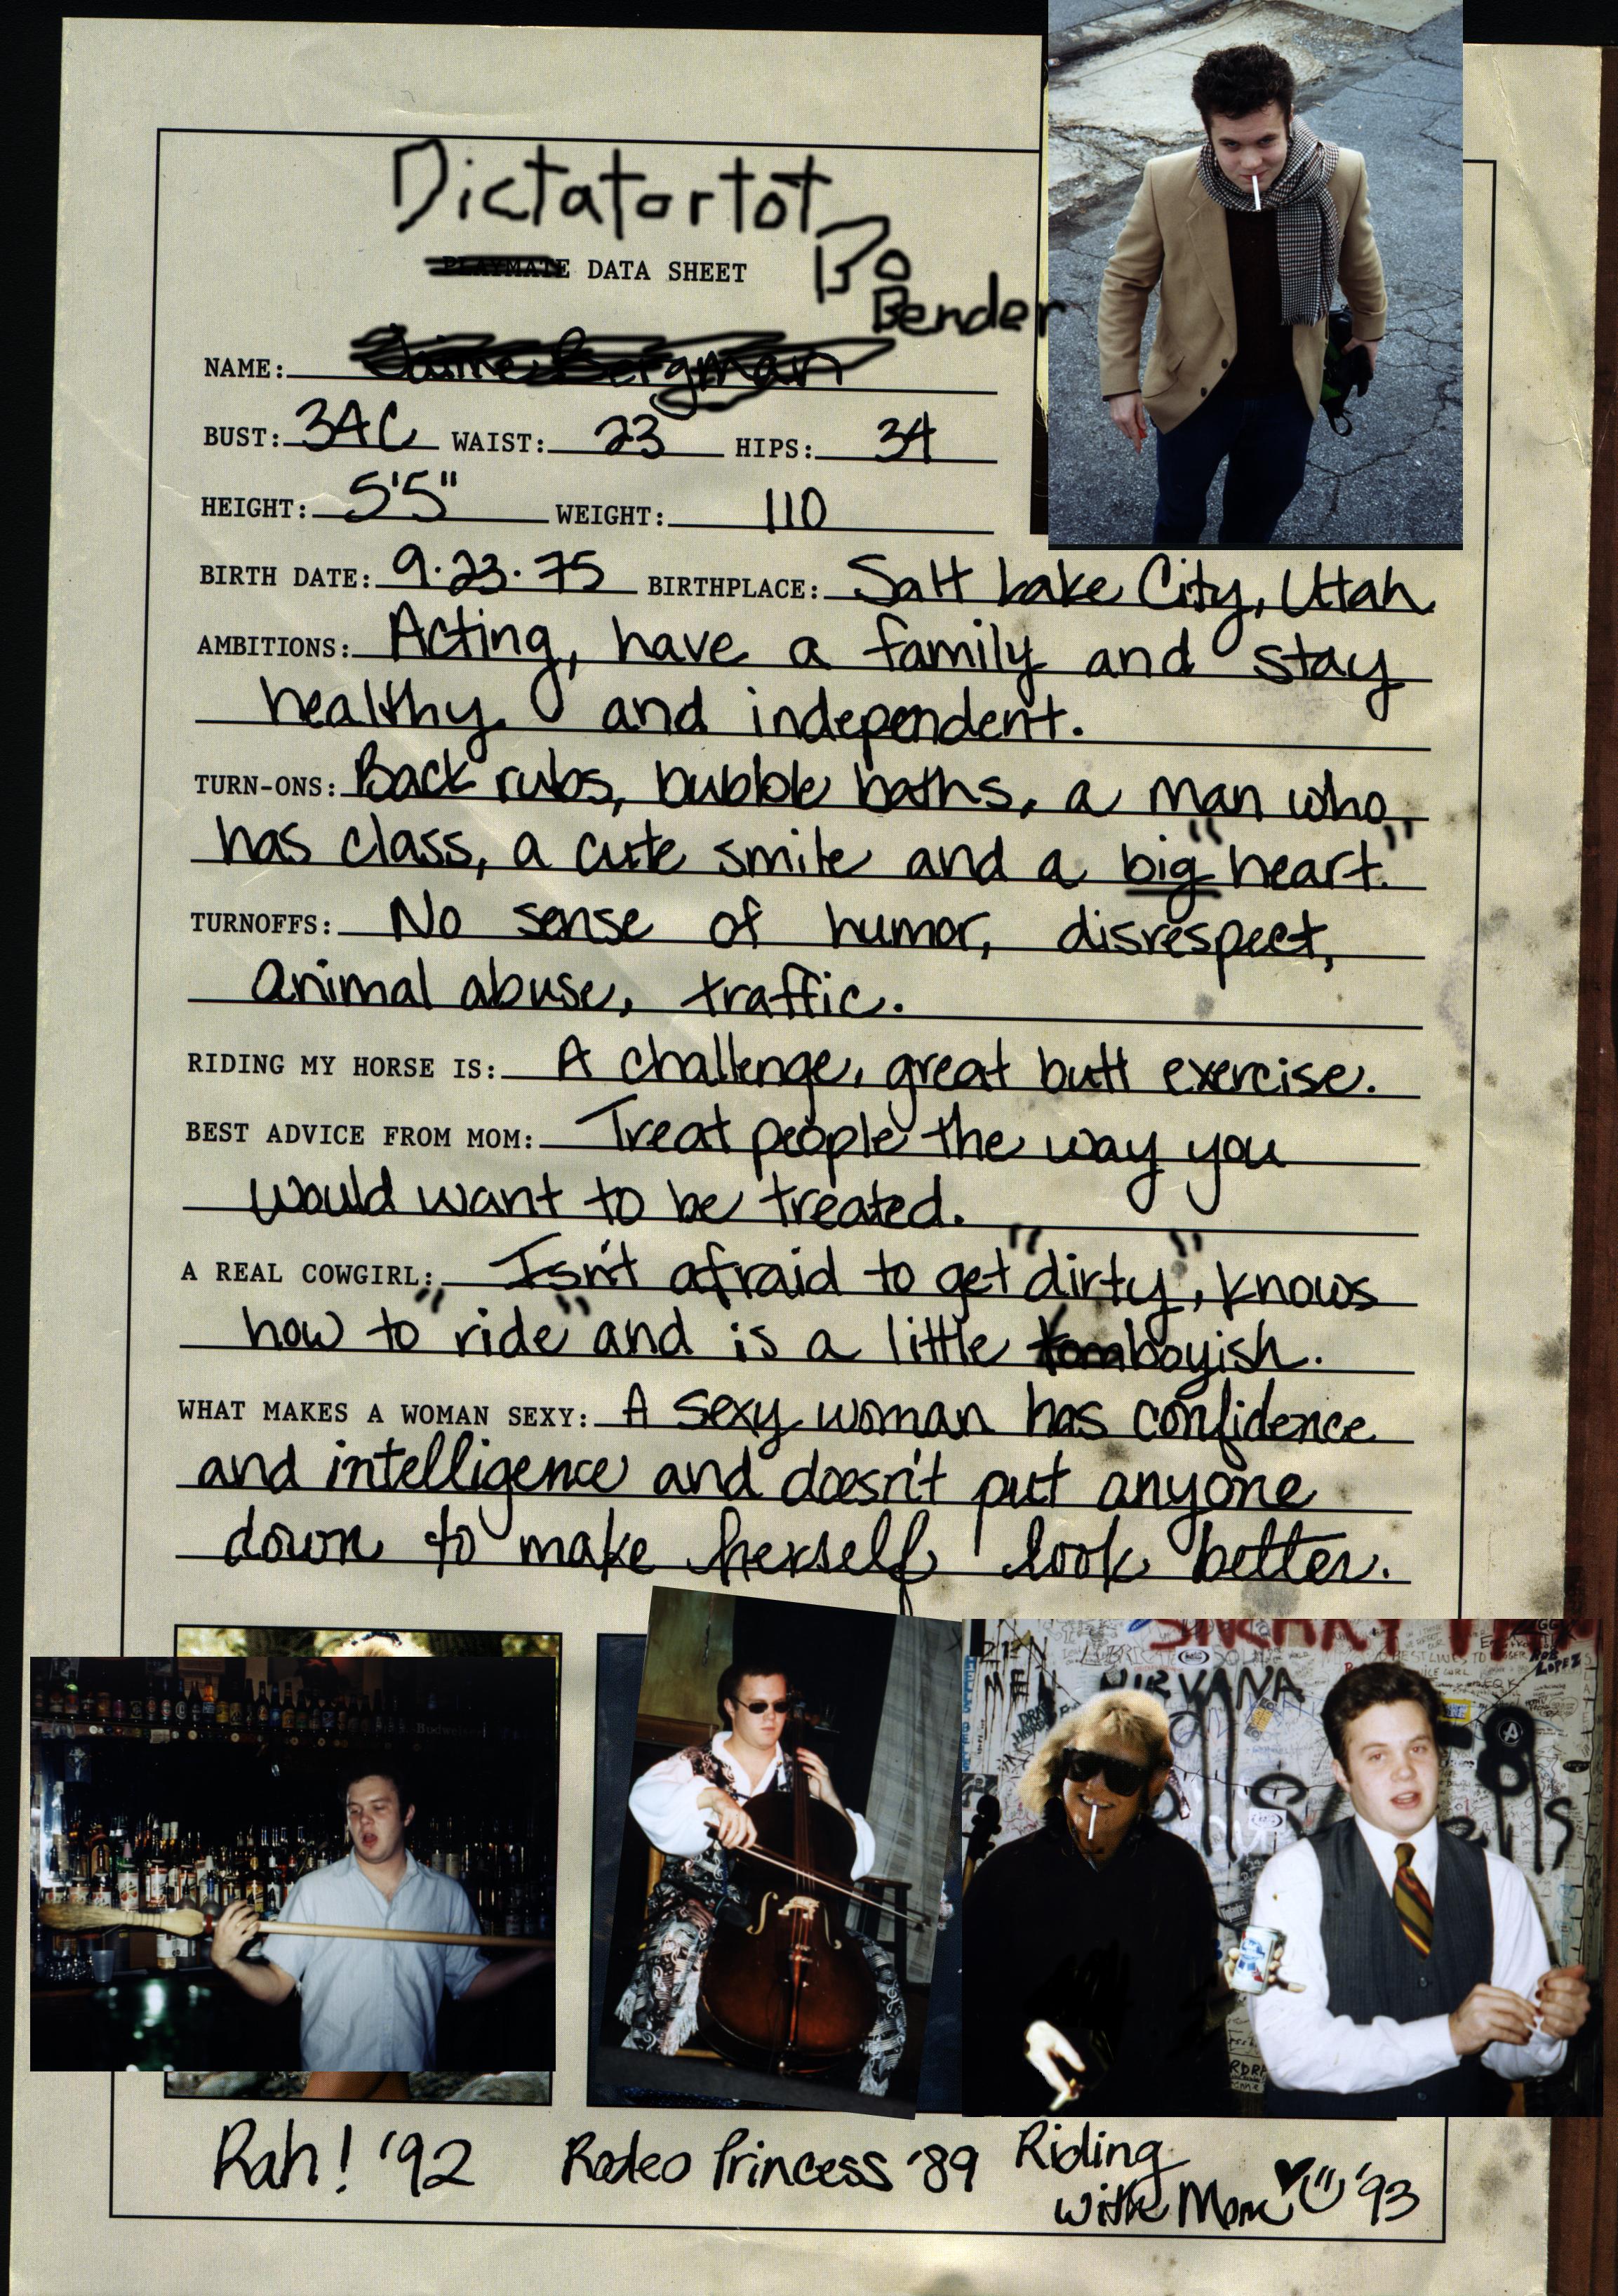 Dictatortot
PLAYMATE DATA SHEET
Bo
Bender
NAME: Jaime Bergman
BUST: 34C WAIST: 23 HIPS: 34
HEIGHT: 5'5" WEIGHT: 110
BIRTH DATE: 9.23.75 BIRTHPLACE: Salt Lake City, Utah
AMBITIONS: Acting, have a family and stay
healthy and independent.
TURN-ONS: Back rubs, bubble baths, a man who
has class, a cute smile and a big "heart."
TURNOFFS: No sense of humor, disrespect,
animal abuse, traffic.
RIDING MY HORSE IS: A challenge, great butt exercise.
BEST ADVICE FROM MOM: Treat people the way you
would want to be treated.
A REAL COWGIRL: Isn't afraid to get "dirty", knows
how to "ride" and is a little tomboyish.
WHAT MAKES A WOMAN SEXY: A sexy woman has confidence
and intelligence and doesn't put anyone
down to make herself look better.
NIRVANA
Budweiser
LOPEZ
Rah! '92
Rodeo Princess '89
Riding
with Mom ♥ '93